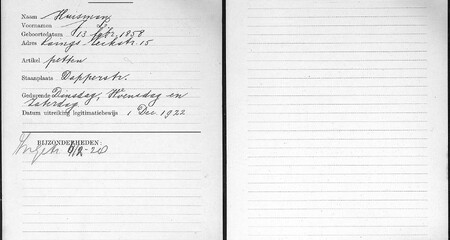 Naam Huisman
Voornamen J.
Geboortedatum 13 Febr. 1858
Adres Lengs Leckstr. 15
Artikel petten
Staanplaats Dapperstr.
Gedurende Dinsdag, Woensdag en
Zaterdag.
Datum uitreiking legitimatiebewijs 1 Dec. 1922
BIJZONDERHEDEN: